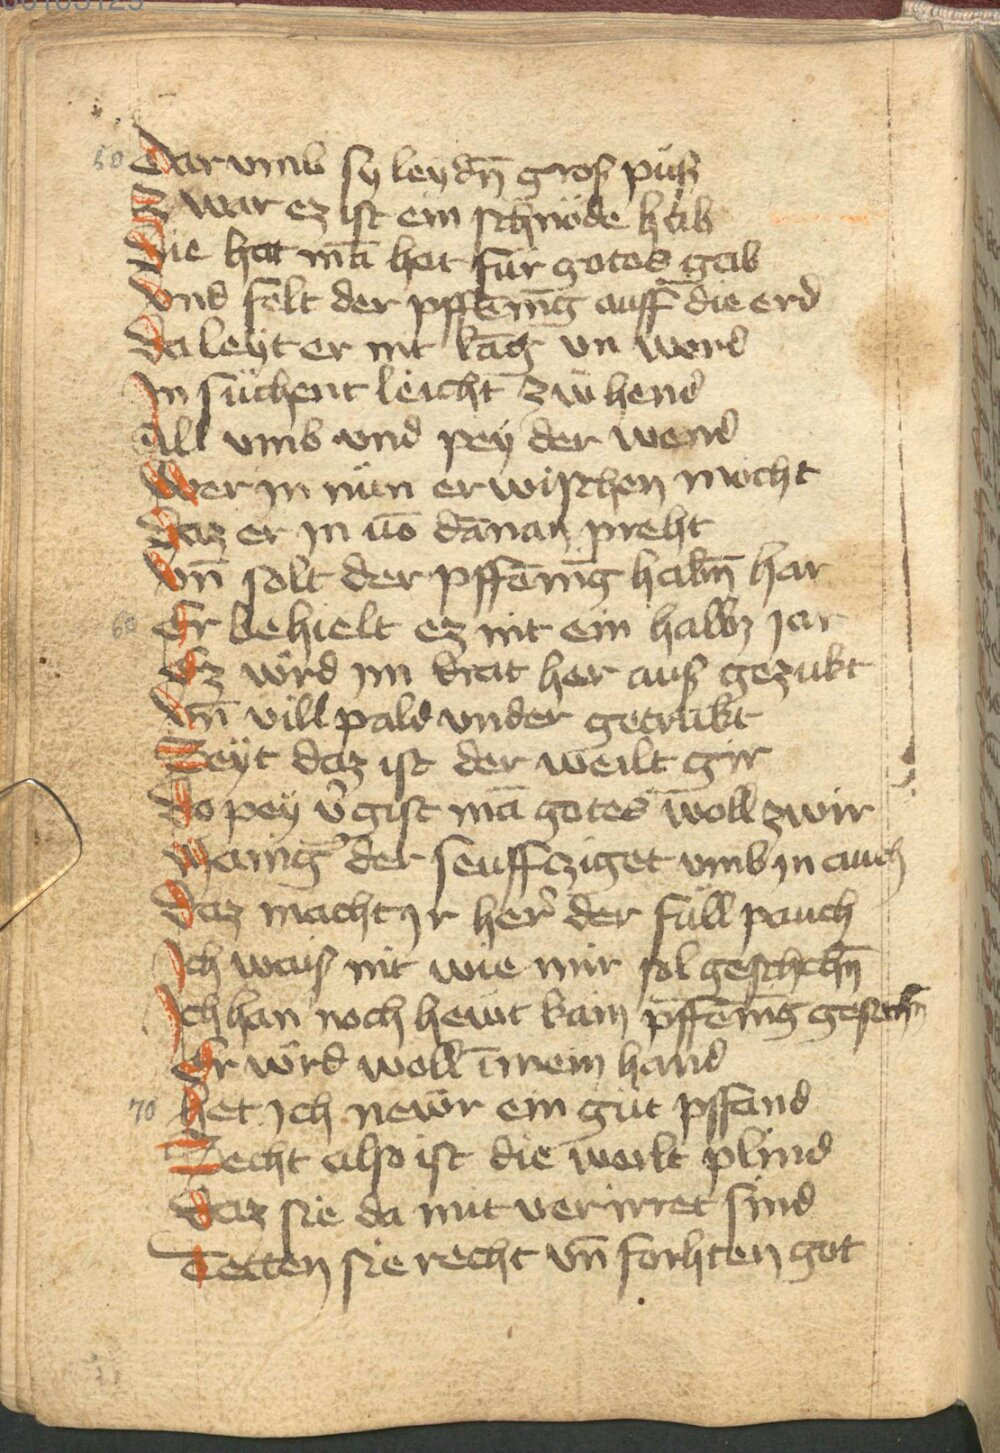 50 Dar vmb sy leydn̄ gros püß
Z war ez ist ein schnöde hab
Die hat mā hat für gotes gab
Vnd felt der pffēnīg auff die erd
Da leyt er nit lāg vn werd
Jn süchent leicht zwü hend
All vmb vnd pey der wend
Wer jn nün erwischen möcht
Daz er jn vō dānan preht
Vn̄ solt der pffēnīg habn̄ har
60 Er behielt ez nit ein halbz jar
Ez würd im krat her auß gezukt
Vn̄ vill pald vnder getrukt
Zeyt daz ist der weilt gir
Do pey v̄gist mā gotes woll zwir
Manig der seuffcziget vmb jn auch
Daz macht jr her der füll pauch
Jch wais nit wie mir sol geschehn̄
Jch han noch hewt kain pffēnīg gesechn̄
Er würd woll ī mein hand
70 Het jch newr ein güt pffand
Secht also ist die werlt plind
Daz sie da mit verirret sind
Tetten sie recht vn̄ forhten got